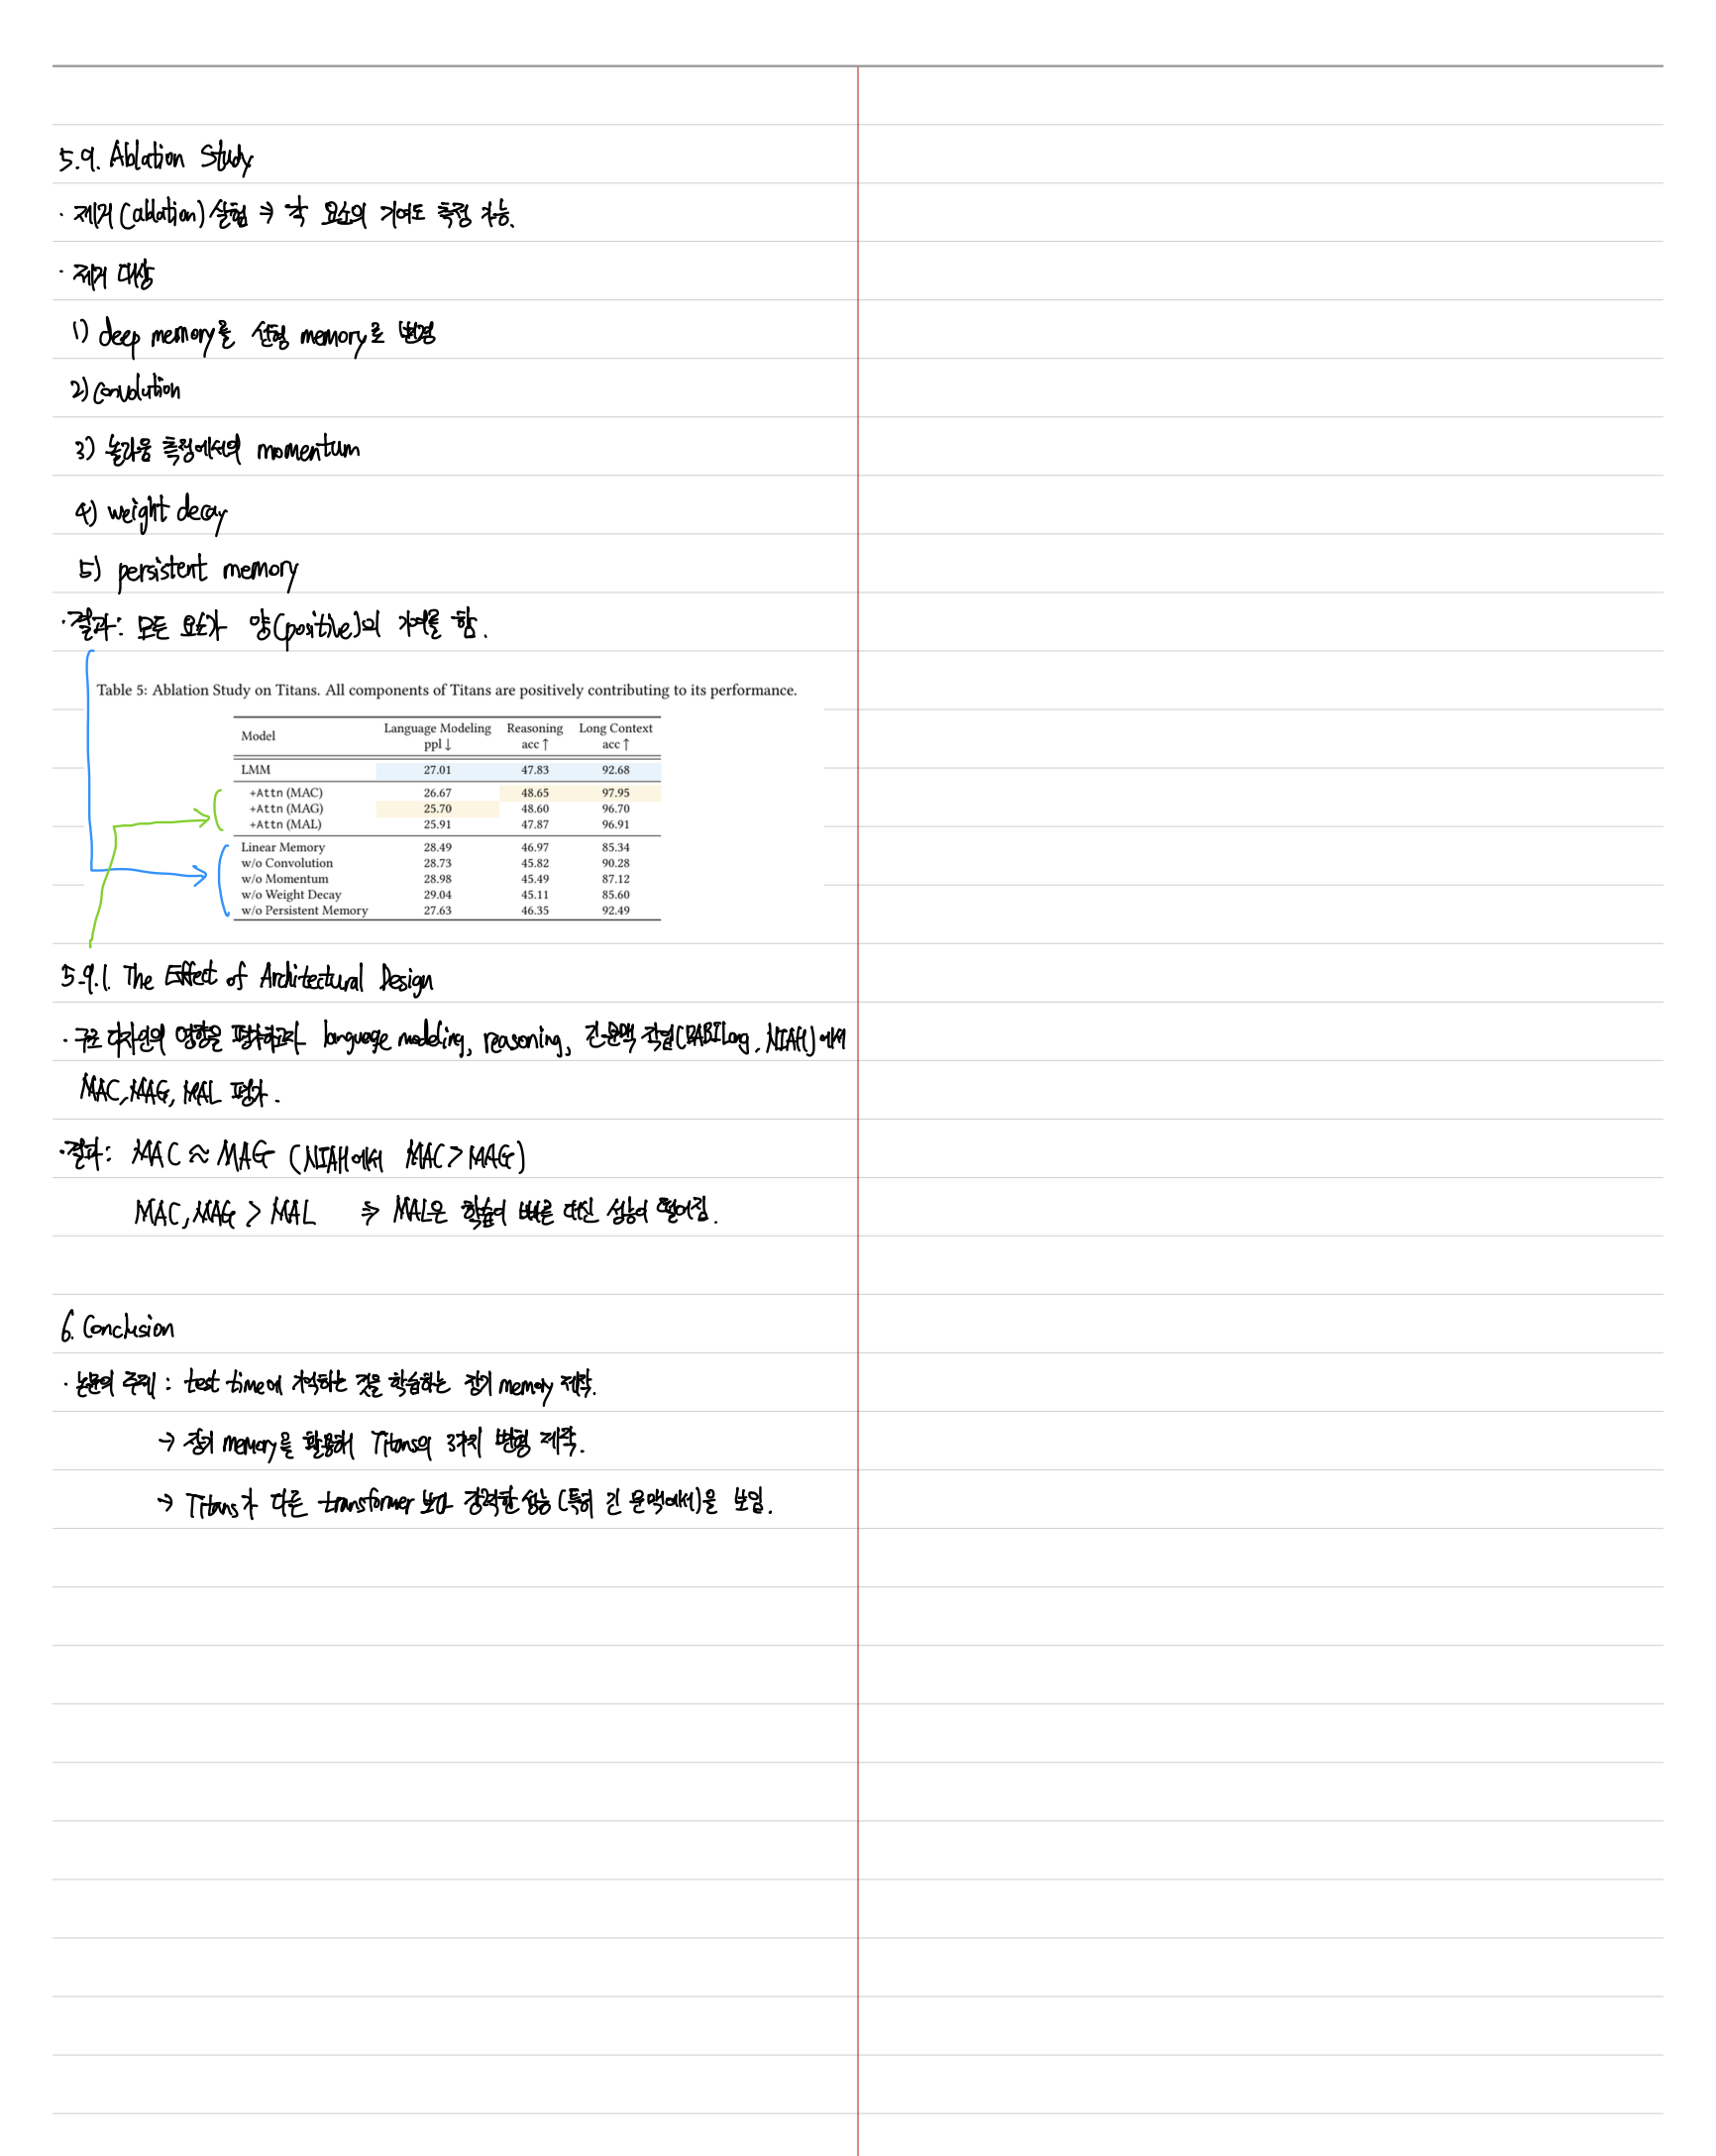 5.9. Ablation Study
· 제거(ablation) 실험 ⇒ 각 요소의 기여도 측정 가능.
· 제거 대상
1) deep memory를 선형 memory로 변경
2) convolution
3) 놀라움 측정에서의 momentum
4) weight decay
5) persistent memory
· 결과: 모든 요소가 양(positive)의 기여를 함.
Table 5: Ablation Study on Titans. All components of Titans are positively contributing to its performance.
Model Language Modeling Reasoning Long Context
ppl ↓ acc ↑ acc ↑
LMM 27.01 47.83 92.68
+Attn (MAC) 26.67 48.65 97.95
+Attn (MAG) 25.70 48.60 96.70
+Attn (MAL) 25.91 47.87 96.91
Linear Memory 28.49 46.97 85.34
w/o Convolution 28.73 45.82 90.28
w/o Momentum 28.98 45.49 87.12
w/o Weight Decay 29.04 45.11 85.60
w/o Persistent Memory 27.63 46.35 92.49
5.9.1. The Effect of Architectural Design
· 구조 디자인의 영향을 평가하고자 language modeling, reasoning, 긴 문맥 작업(BABILong, NIAH)에서
MAC, MAG, MAL 평가.
· 결과: MAC ≈ MAG (NIAH에서 MAC > MAG)
MAC, MAG > MAL ⇒ MAL은 학습이 빠른 대신 성능이 떨어짐.
6. Conclusion
· 논문의 주제 : test time에 기억하는 것을 학습하는 장기 memory 제작.
→ 장기 memory를 활용해 Titans의 3가지 변형 제작.
→ Titans가 다른 transformer 보다 강력한 성능 (특히 긴 문맥에서)을 보임.